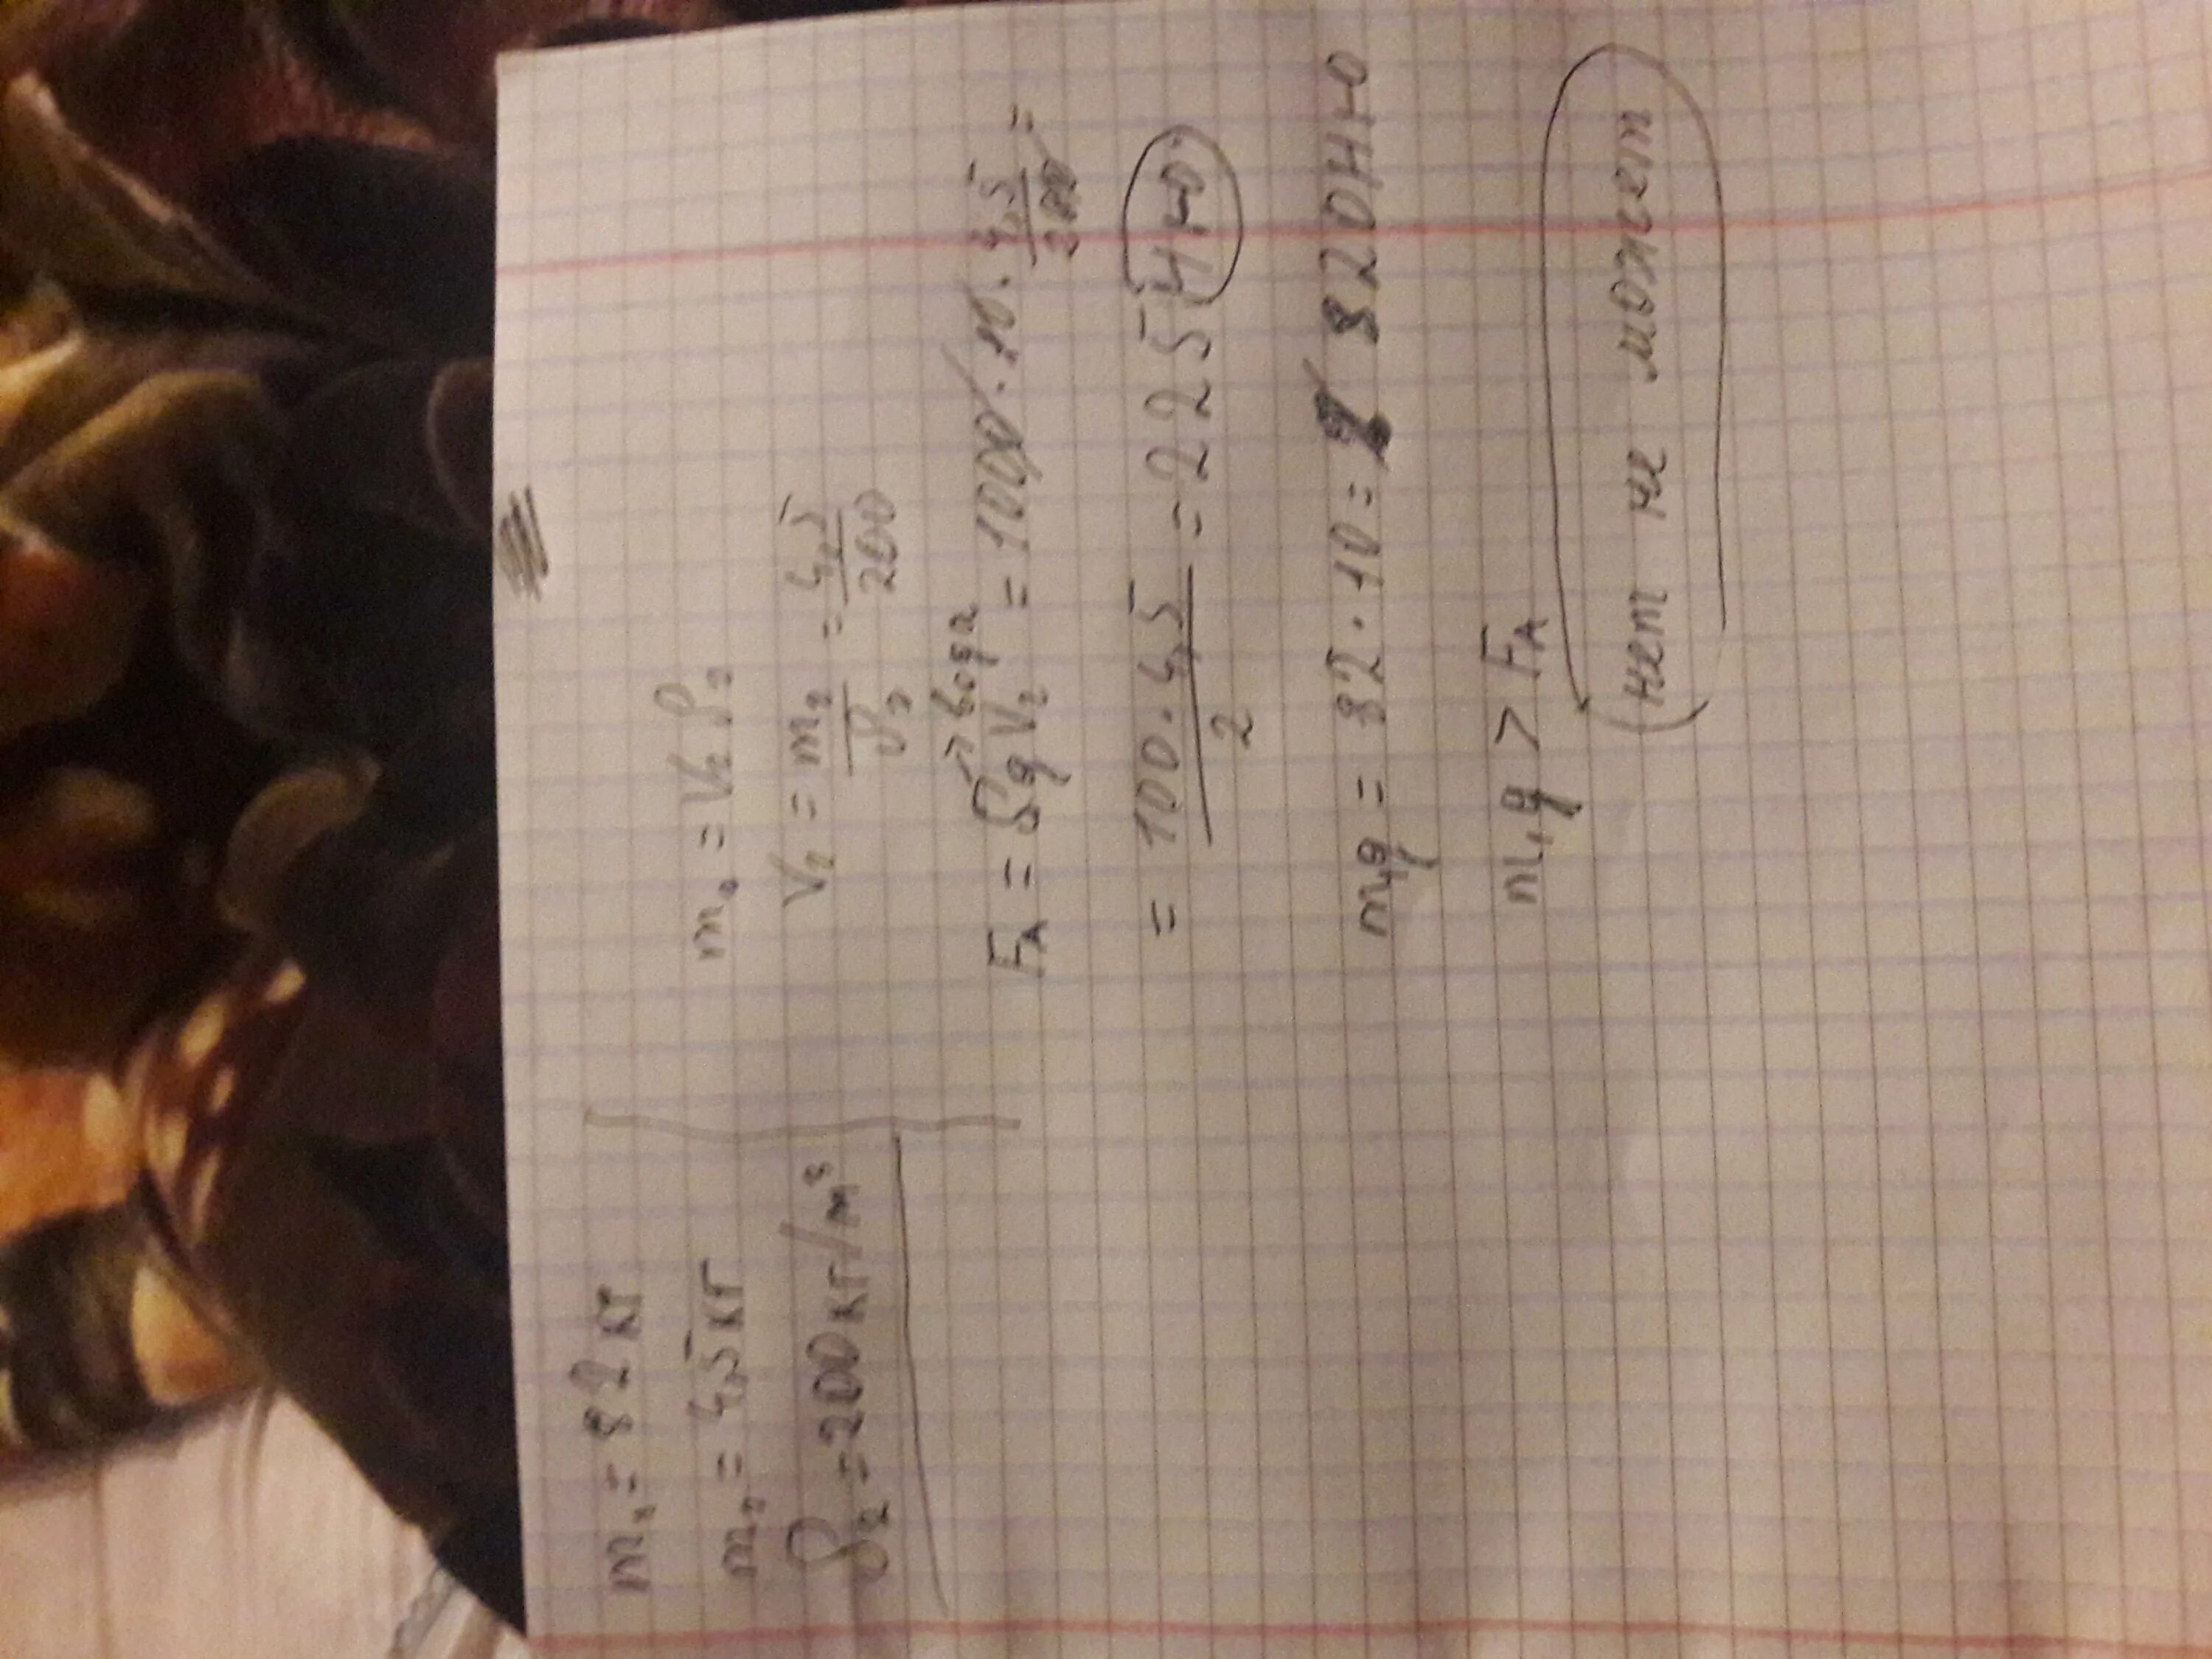 m₁ = 82 кг
m₂ = 4,5 кг
ρ₂ = 200 кг/м³
m₂ = V₂ ρ₂
V₂ = m₂/ρ₂ = 4,5/200
F_A = ρ g V₂ = 1000 · 10 · 4,5/200 =
→ вода
= 100 · 4,5/2 = 225 Н+ю
m₁g = 82 · 10 = 820 Н+ю
m₁g > F_A
(нет не может